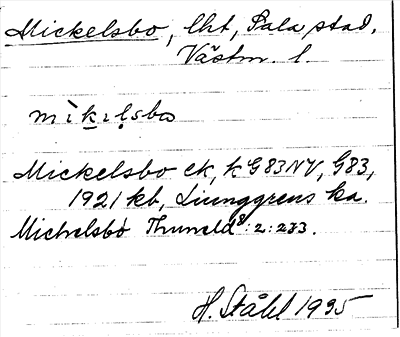 Mickelsbo, lht, Sala stad,
Västm. l.
mìkɪl̥sbω
Mickelsbo ek, k G83NV, G83,
1921 kb, Ljunggrens ka.
Michelsbo Thuneld⁸:2:233.
H. Ståhl 1935